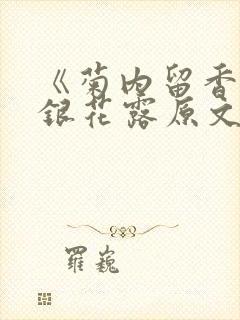 《菊内留香
银花露原文
罹巍